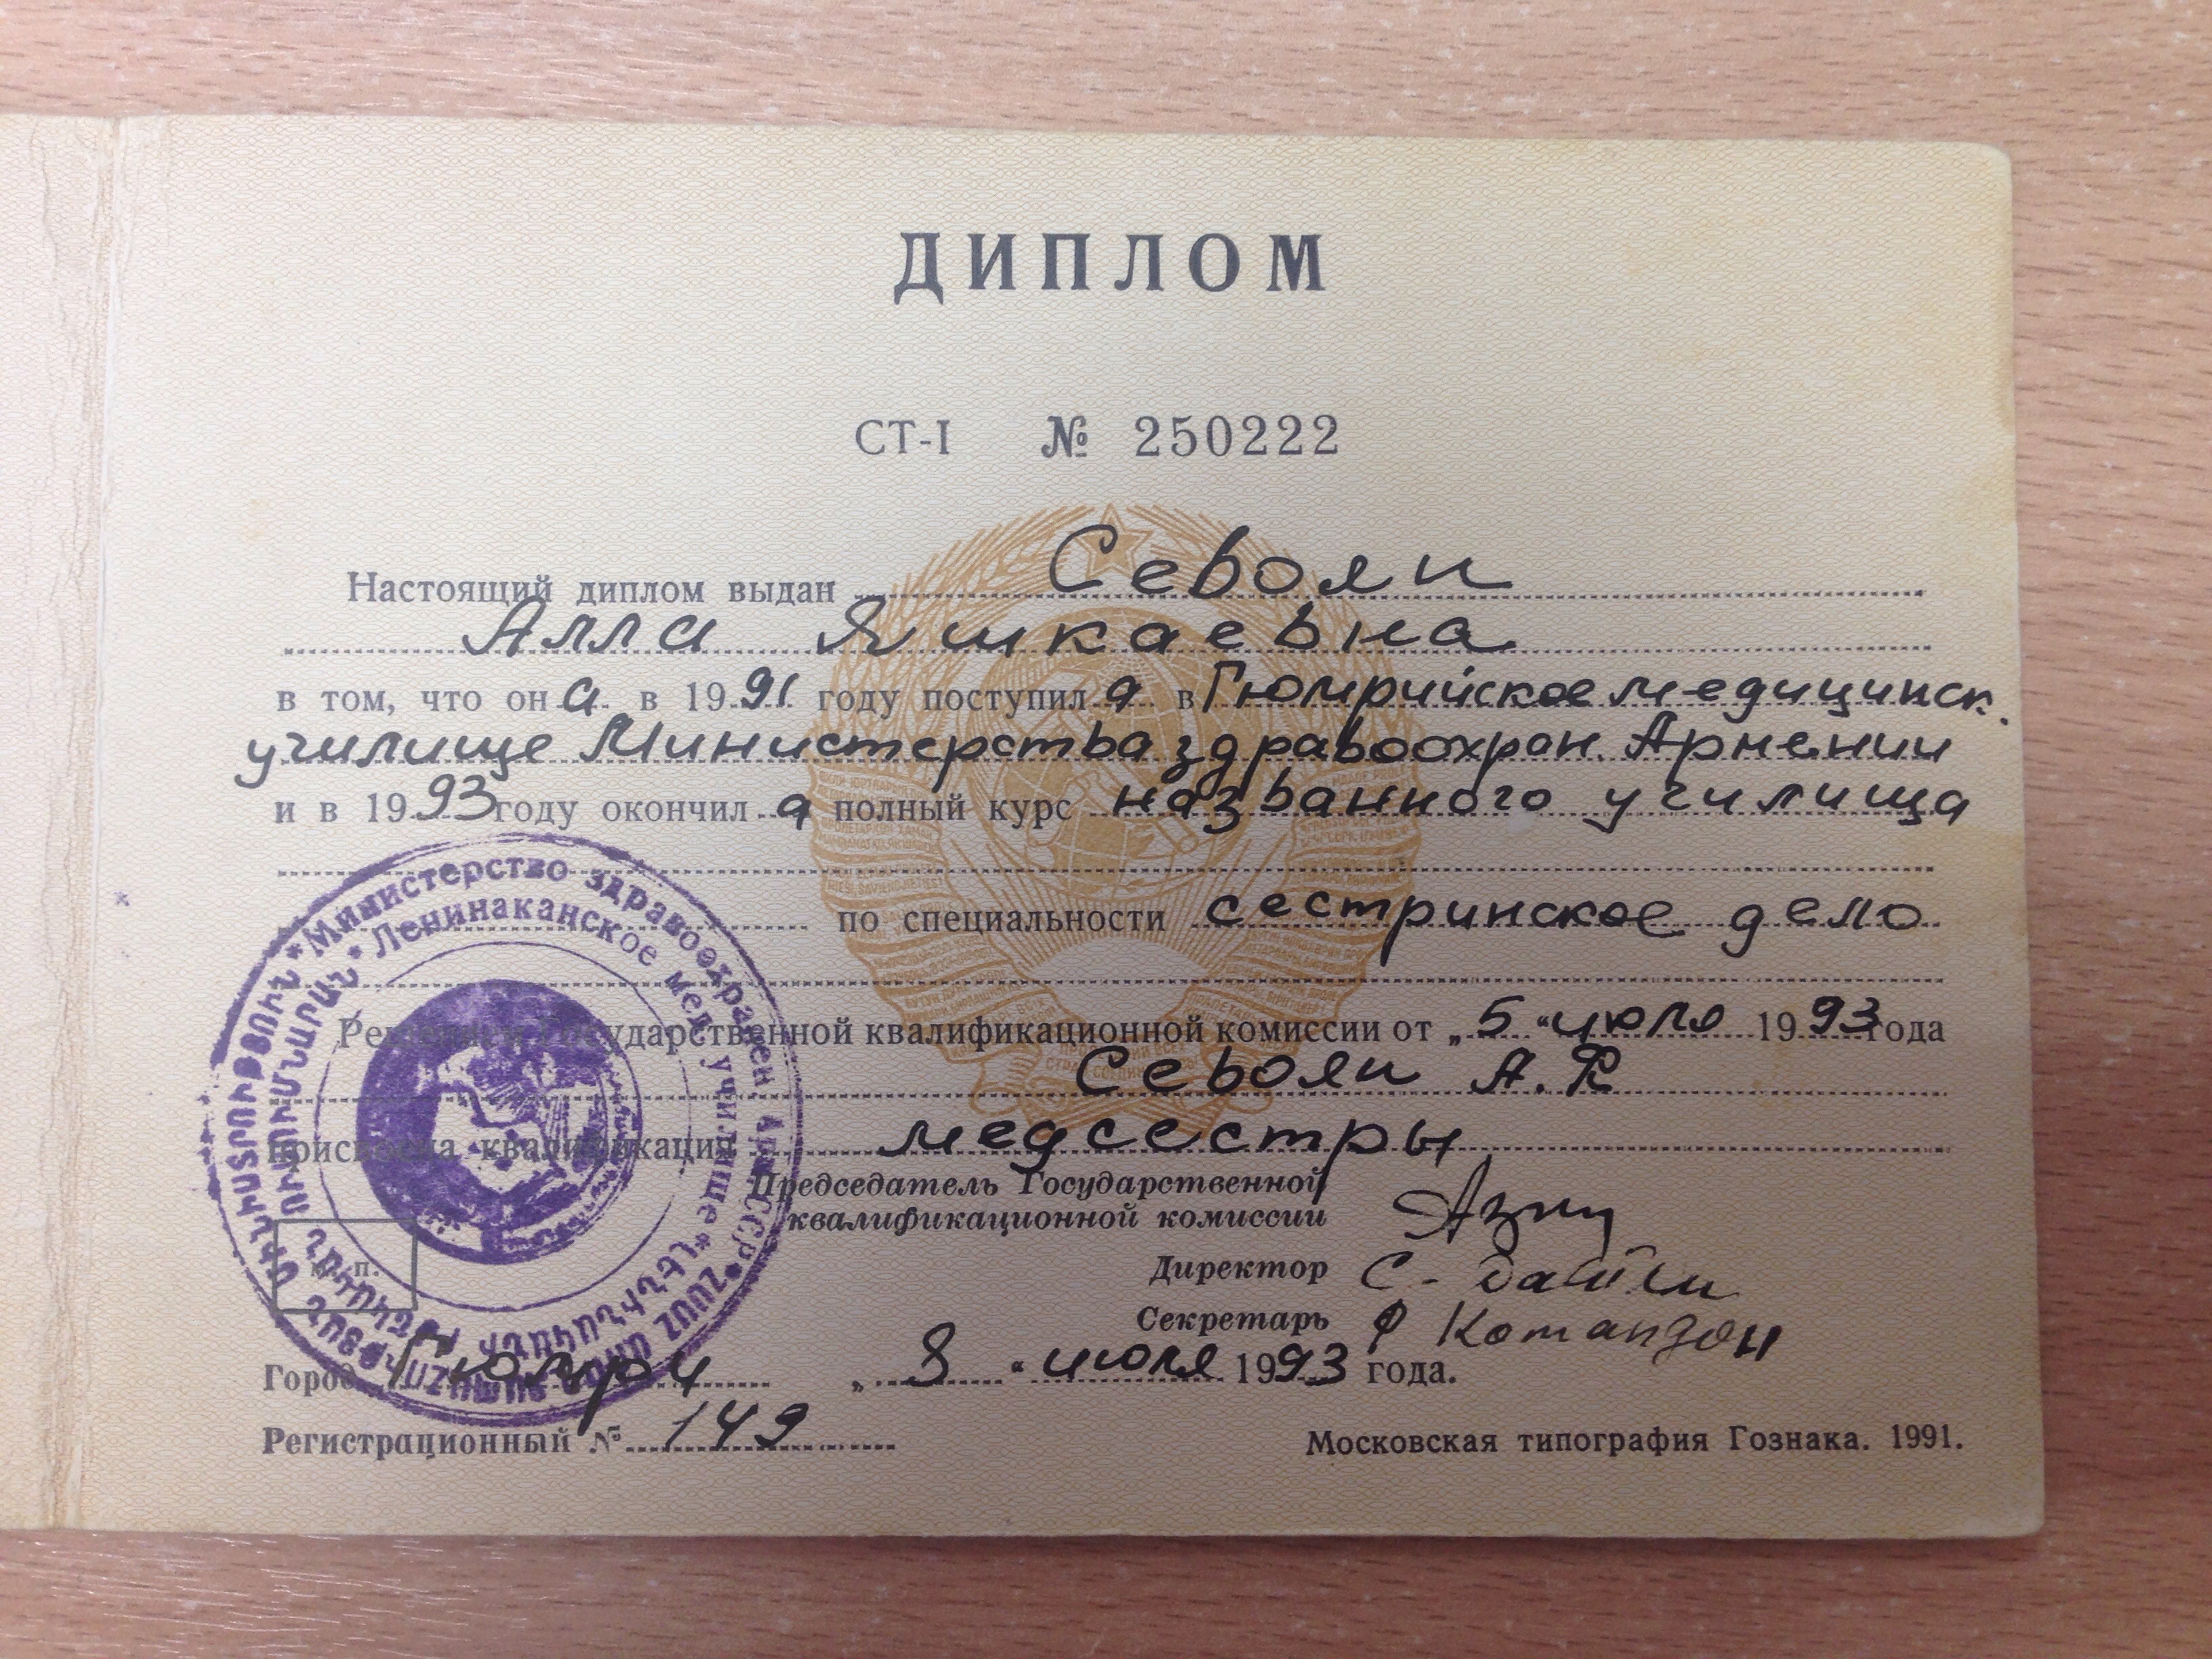 ДИПЛОМ
СТ-I № 250222
Настоящий диплом выдан Севоян
Алла Яшкаевна
в том, что он а в 1991 году поступил а в Гюмрийское медицинск.
училище Министерства здравоохран. Армении
и в 1993 году окончил а полный курс названного училища
по специальности сестринское дело
Решением Государственной квалификационной комиссии от „5“ июля 1993 года
Севоян А. Я
присвоена квалификация медсестры
Председатель Государственной
квалификационной комиссии
Директор С.
Секретарь
Город Гюмри „8“ июля 1993 года.
Регистрационный № 149
Московская типография Гознака. 1991.
м. п.
*Министерство здравоохранен. Арм. ССР*
*Ленинаканское мед. училище*